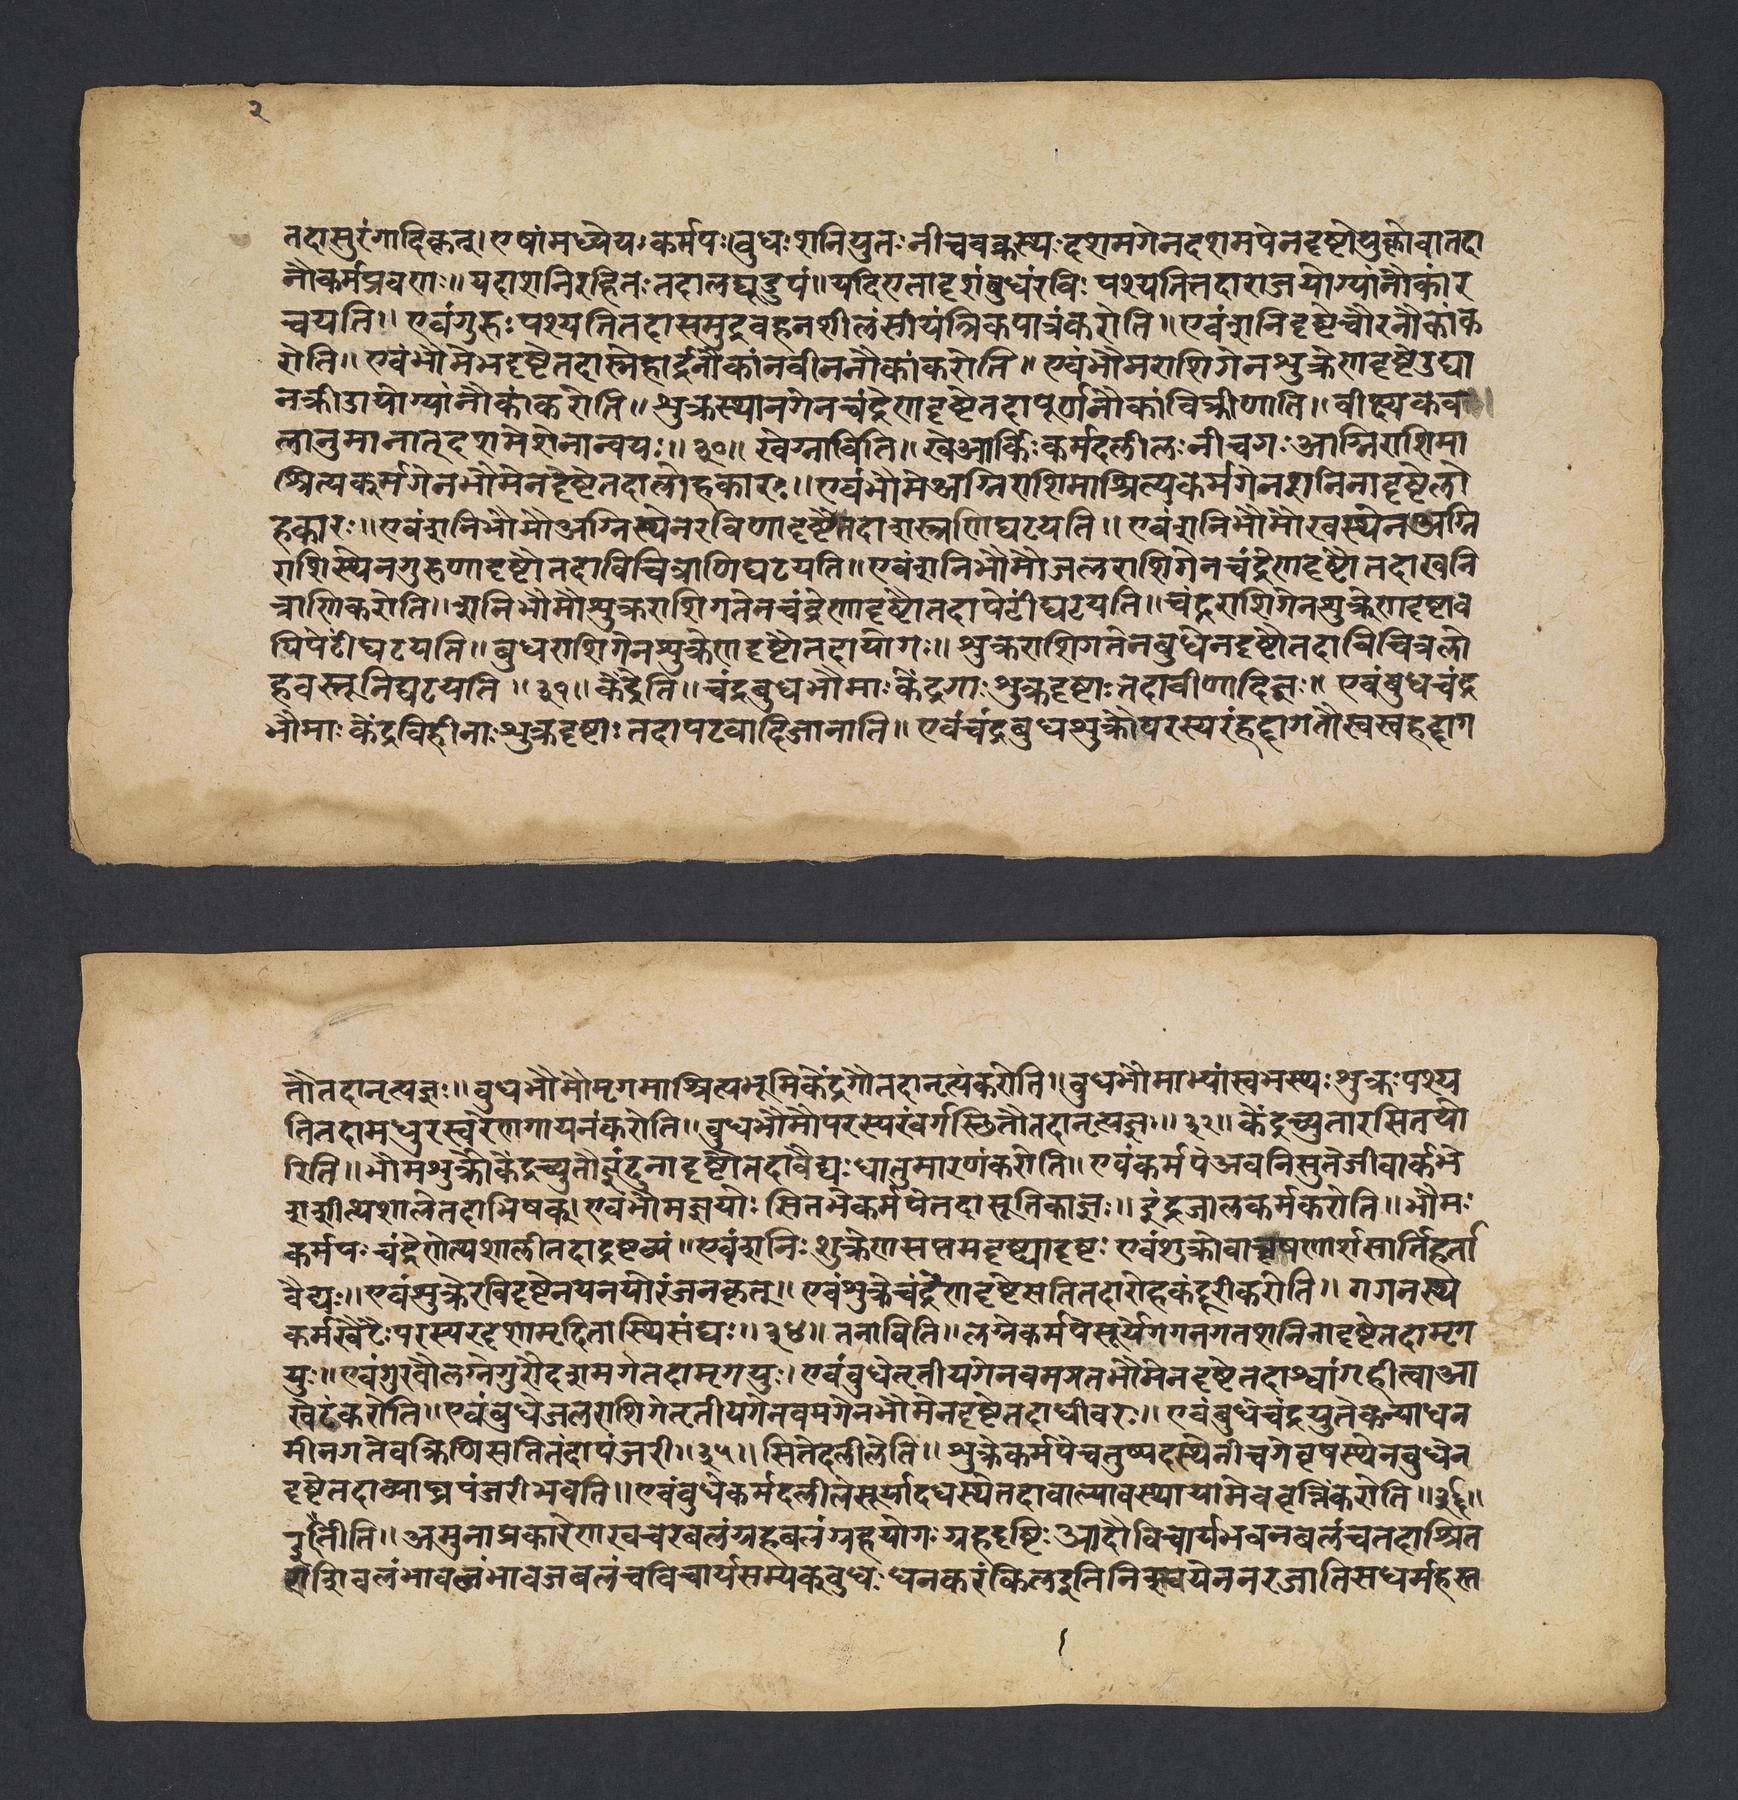 २
तदासुरंगादिकृत्। एषांमध्येयः कर्मपः। बुधः शनियुतः नीचवक्रस्थः दशमगेनदशमपेनदृष्टोयुक्तोवातदा
नौकर्मप्रवणः॥ यदाशनिरहितः तदालघूडुपं॥ यदिएतादृशंबुधंरविः पश्यतितदाराजयोग्यांनौकांर
चयति॥ एवंगुरुः पश्यतितदासमुद्रवहनशीलंसांयंत्रिकपात्रंकरोति॥ एवंशनिदृष्टेचौरनौकांक
रोति॥ एवंभौमेभदृष्टेतदास्नेहार्द्रनौकांनवीननौकांकरोति॥ एवंभौमराशिगेनशुक्रेणदृष्टेउद्या
नक्रीडायोग्यांनौकांकरोति॥ शुक्रस्थानगेनचंद्रेणदृष्टेतदापूर्णनौकांविक्रीणाति॥ वीक्ष्यकेव
लानुमानात् दशमेशेनान्वयः॥ ३०॥ खेग्नाविति॥ खेआर्किः कर्मदलीलः नीचगः आग्निराशिमा
श्रित्यकर्मगेनभौमेनदृष्टेतदालोहकारः॥ एवंभौमेअग्निराशिमाश्रित्यकर्मगेनशनिनादृष्टेलो
हकारः॥ एवंशनिभौमौअग्निस्थेनरविणादृष्टौतदाशस्त्राणिघटयति॥ एवंशनिभौमौखस्थेनअग्नि
राशिस्थेनगुरुणादृष्टौतदाविचित्राणिघटयति॥ एवंशनिभौमौजलराशिगेनचंद्रेणदृष्टौतदाखनि
त्राणिकरोति॥ शनिभौमौशुक्रराशिगतेनचंद्रेणदृष्टौतदापेटींघटयति॥ चंद्रराशिगेनशुक्रेणदृष्टाव
पिपेटींघटयति॥ बुधराशिगेनशुक्रेणदृष्टौतदायोगः॥ शुक्रराशिगतेनबुधेनदृष्टौतदाविचित्रलो
हवस्तूनिघटयति॥ ३१॥ केंद्रेति॥ चंद्रबुधभौमाः केंद्रगाः शुक्रदृष्टाः तदावीणादिज्ञः॥ एवंबुधचंद्र
भौमाः केंद्रविहीनाः शुक्रदृष्टाः तदापटवादिजानाति॥ एवंचंद्रबुधशुक्रौपरस्परंहद्दागतौस्वस्वहद्दाग
तौतदानृत्यज्ञः॥ बुधभौमौमृगमाश्रित्यभूमिकेंद्रगौतदानृत्यंकरोति॥ बुधभौमाभ्यांस्वभस्थः शुक्रः पश्य
तितदामधुरस्वरेणगायनंकरोति॥ बुधभौमौपरस्परंवर्गस्थितौतदानृत्यज्ञः॥ ३२॥ केंद्रच्युतारसितयो
रिति॥ भौमशुक्रौकेंद्रच्युतौइंदुनादृष्टौतदावैद्यः धातुमारणंकरोति॥ एवंकर्मपेअवनिसुतेजीवार्कभे
शशीत्थशालेतदाभिषक्। एवंभौमज्ञयोः सितभेकर्मपेतदासूतिकाज्ञः॥ इंद्रजालकर्मकरोति॥ भौमः
कर्मपः चंद्रेणेत्थशालीतदादुष्टव्रं॥ एवंशनिः शुक्रेणसप्तमदृष्ट्यादृष्टः एवंशुक्रोवावृषणार्शसार्तिहर्ता
वैद्यः॥ एवंशुक्रेरविदृष्टेनयनयोरंजनकृत्॥ एवंशुक्रेचंद्रेणदृष्टेसतितदारोहकंदूरीकरोति॥ गगनस्थ
कर्मखेटैः परस्परदृशामृदितास्थिसंघः॥ ३४॥ तनाविति॥ लग्नेकर्मपेसूर्येगगनगतशनिनादृष्टेतदामृग
युः॥ एवंगुरवौलग्नेगुरोदशमगेतदामृगयुः। एवंबुधेतृतीयगेनवमगतभौमेनदृष्टेतदाश्वांगृहीत्वाआ
खेटंकरोति॥ एवंबुधेजलराशिगेतृतीयगेनवमगेनभौमेनदृष्टेतदाधीवरः॥ एवंबुधेचंद्रयुतेकन्याधन
मीनगतेवक्रिणिसतितदापंजरी॥ ३५॥ सितेदलीलेति॥ शुक्रेकर्मपेचतुष्पदस्थेनीचगेवृषस्थेनबुधेन
दृष्टेतदाव्याघ्रपंजरीभवति॥ एवंबुधेकर्मदलीलेसूर्यादधस्थेतदाबाल्यावस्थायामेववृत्तिंकरोति॥ ३६॥
इतीति॥ अमुनाप्रकारेणखचरबलंग्रहबलंग्रहयोगः ग्रहदृष्टिः आदौविचार्यभवनबलंचतदाश्रित
राशिबलंभावलंभावजबलंचविचार्यसम्यक् बुधः धनकरंकिलवृतिनिश्चयेननरजातिसधर्महस्त